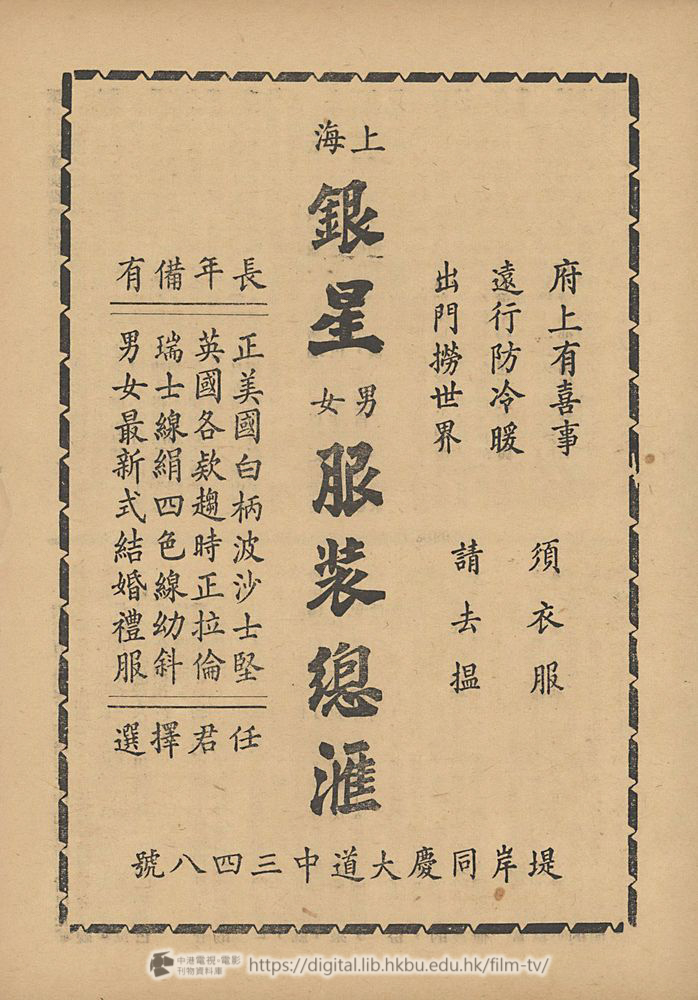 府上有喜事
遠行防冷暖
出門撈世界
須衣服
請去揾
上海
銀星
男女
服装總滙
長年備有
正美國白柄波沙士堅
英國各欵趨時正拉倫
瑞士線絹四色線幼斜
男女最新式結婚禮服
任君擇選
堤岸同慶大道中三四八號
中港電視·電影
刊物資料庫
https://digital.lib.hkbu.edu.hk/film-tv/